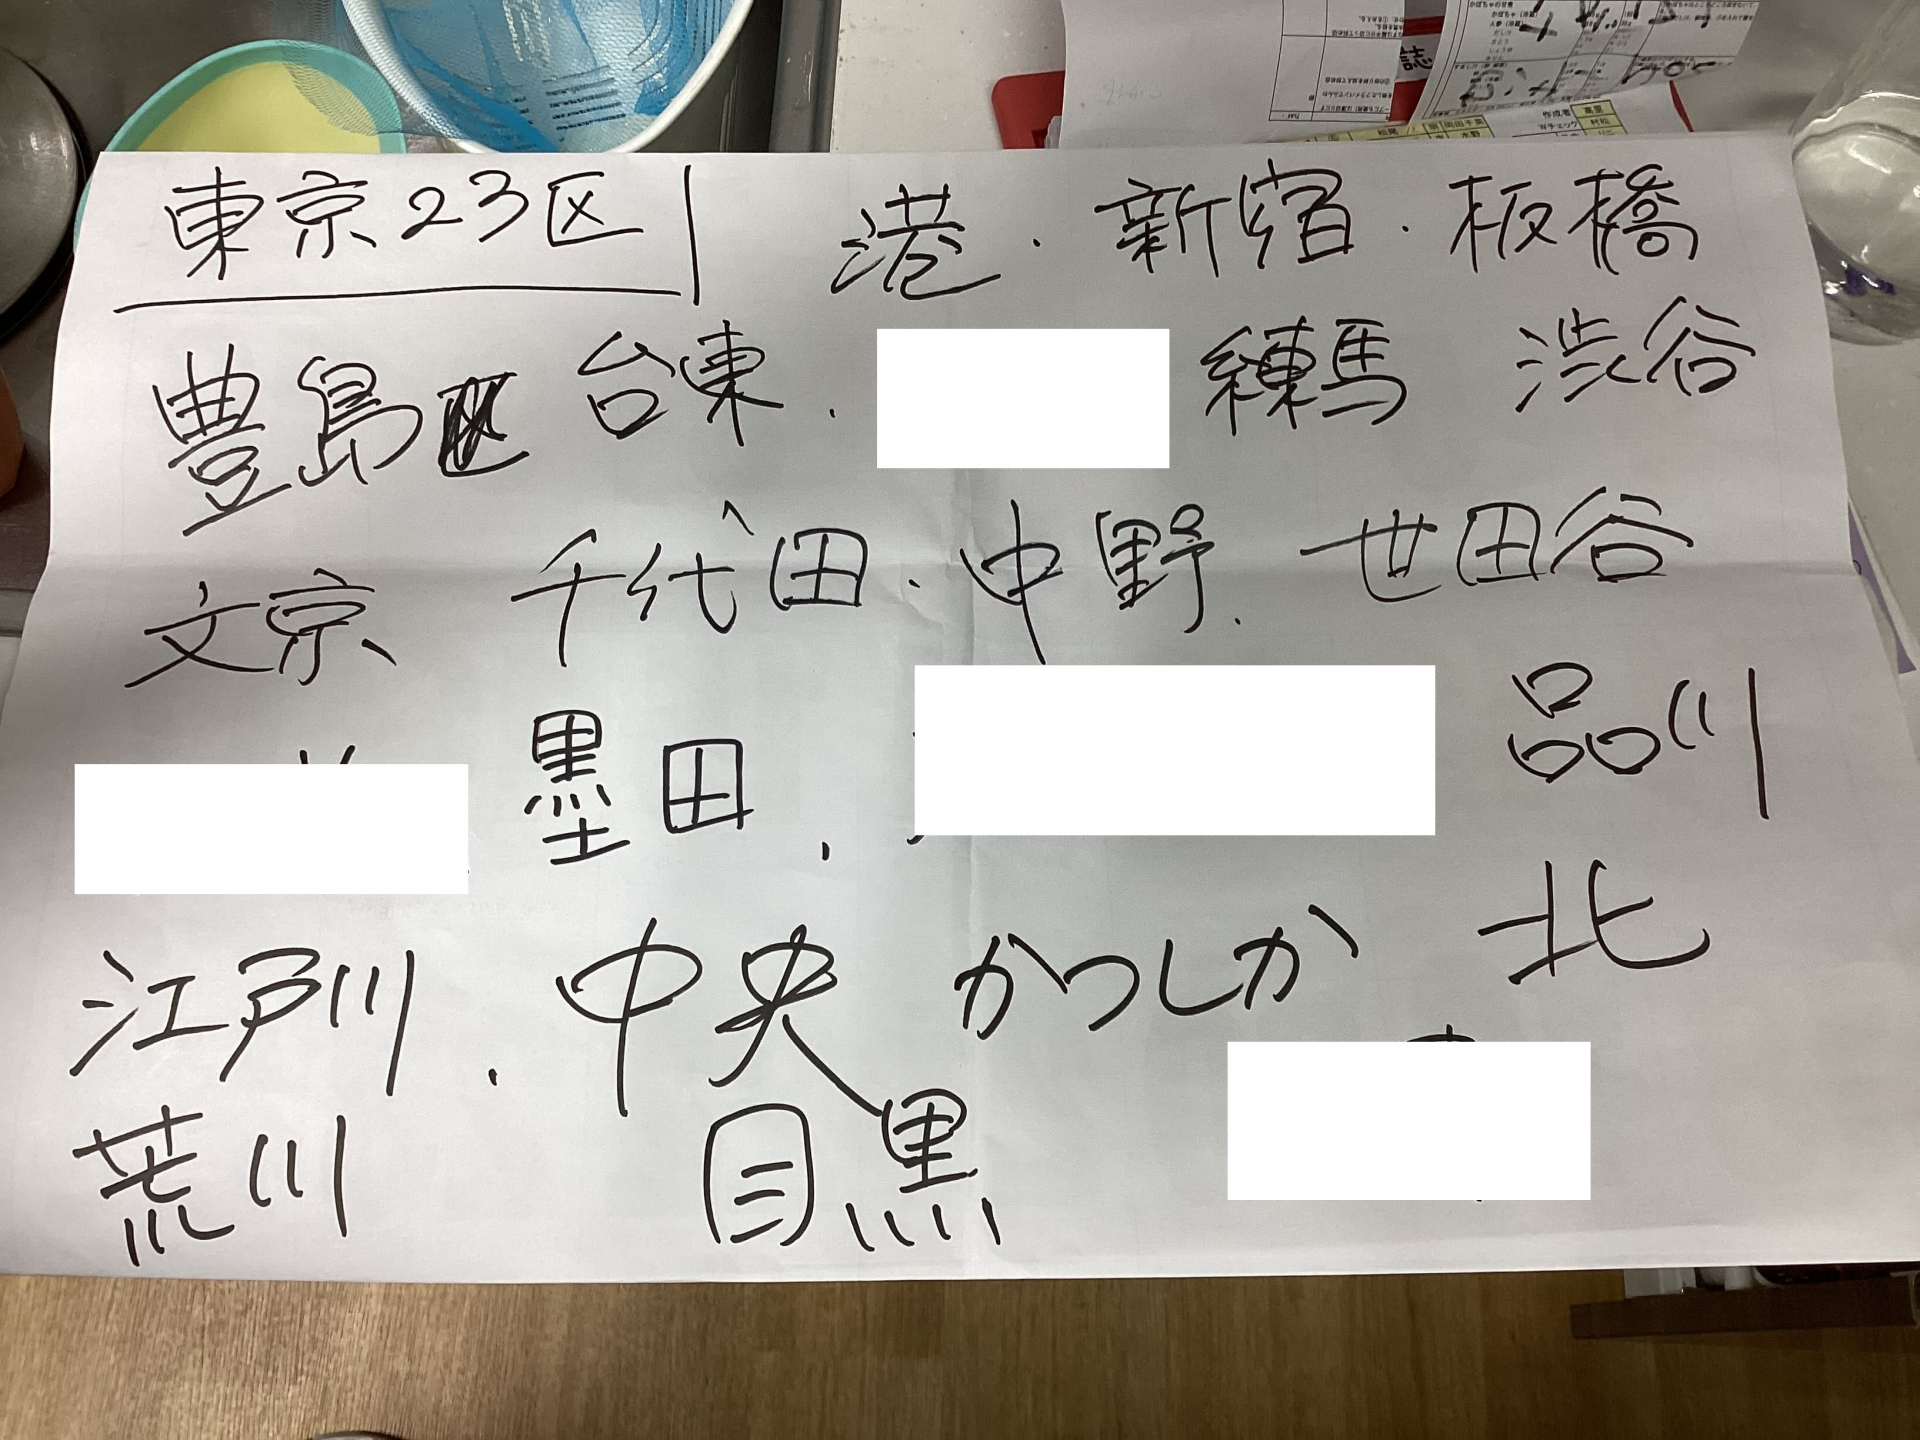 誌
作成者 高里
東京23区 港・新宿・板橋
豊島区 台東. 練馬 渋谷
文京 千代田・中野. 世田谷
墨田. 品川
江戸川. 中央 かつしか 北
荒川 目黒